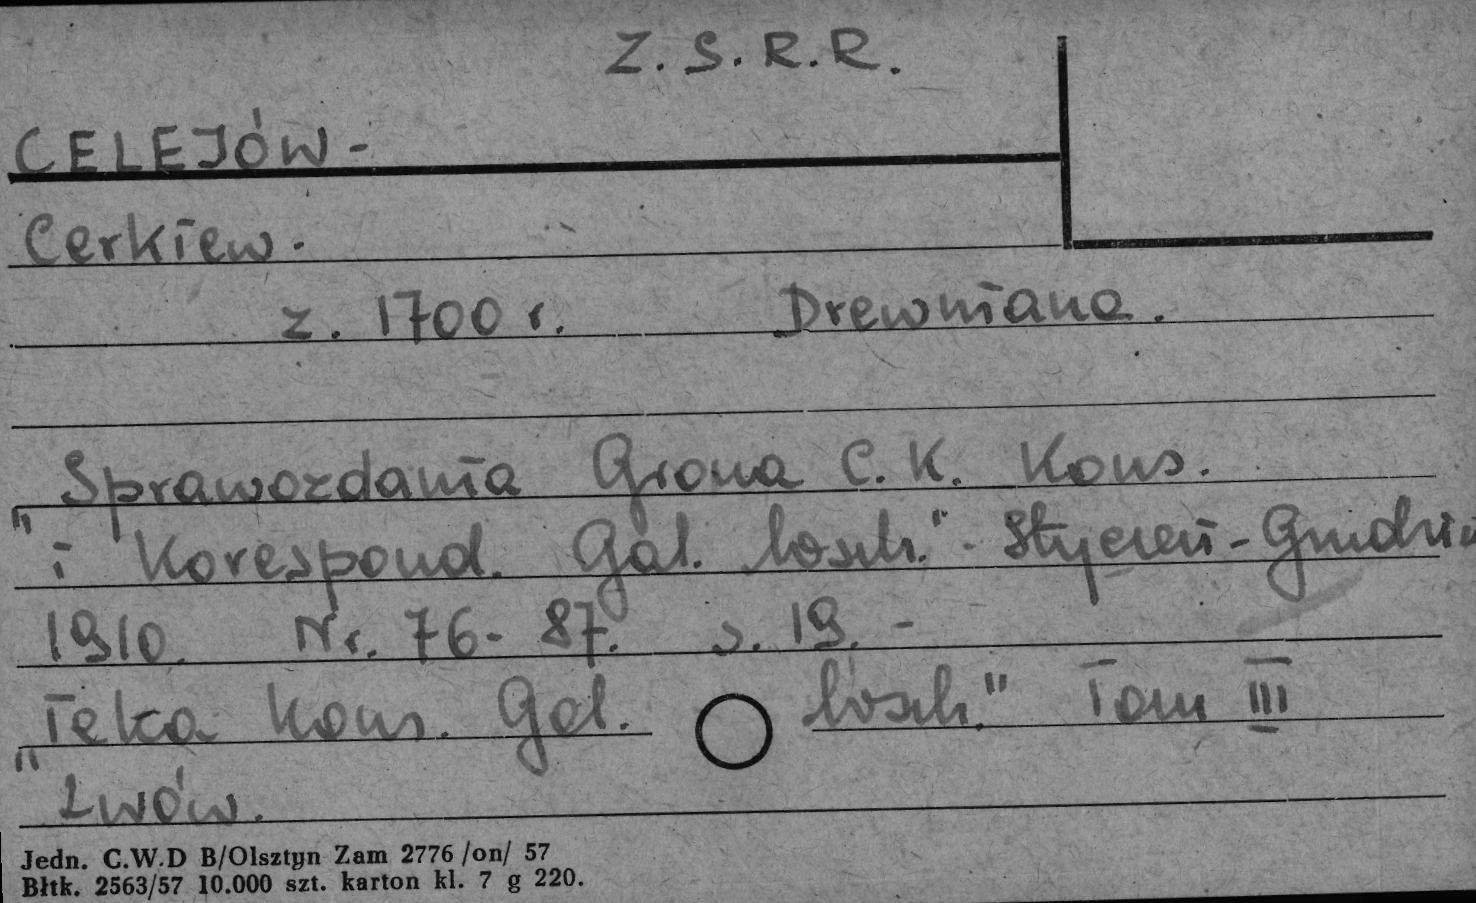 Z.S.R.R.
CELEJÓW -
Cerkiew.
z. 1700 r. Drewniana.
Sprawozdania Grona C.K. Kons.
"i Korespond. Gal. wsch." - Styczeń - Grudzień
1910. Nr. 76-87. s. 19. -
"Teka Kons. Gal. wsch." Tom III
Lwów.
Jedn. C.W.D B/Olsztyn Zam 2776 /on/ 57
Błtk. 2563/57 10.000 szt. karton kl. 7 g 220.